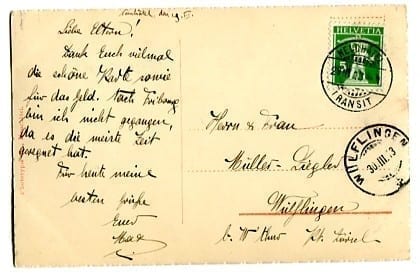 Neuchâtel den 29. III.
Liebe Eltern!
Dank Euch vielmal
die schöne Karte sowie
für das Geld. Nach Fribourg
bin ich nicht gegangen,
da es die meiste Zeit
geregnet hat.
Für heute meine
besten Grüße
Euer
Max
HELVETIA
5
TRANSIT
Herrn & Frau
Müller-Ziegler
Wülflingen
b. W'thur
WÜLFLINGEN
30.III.13